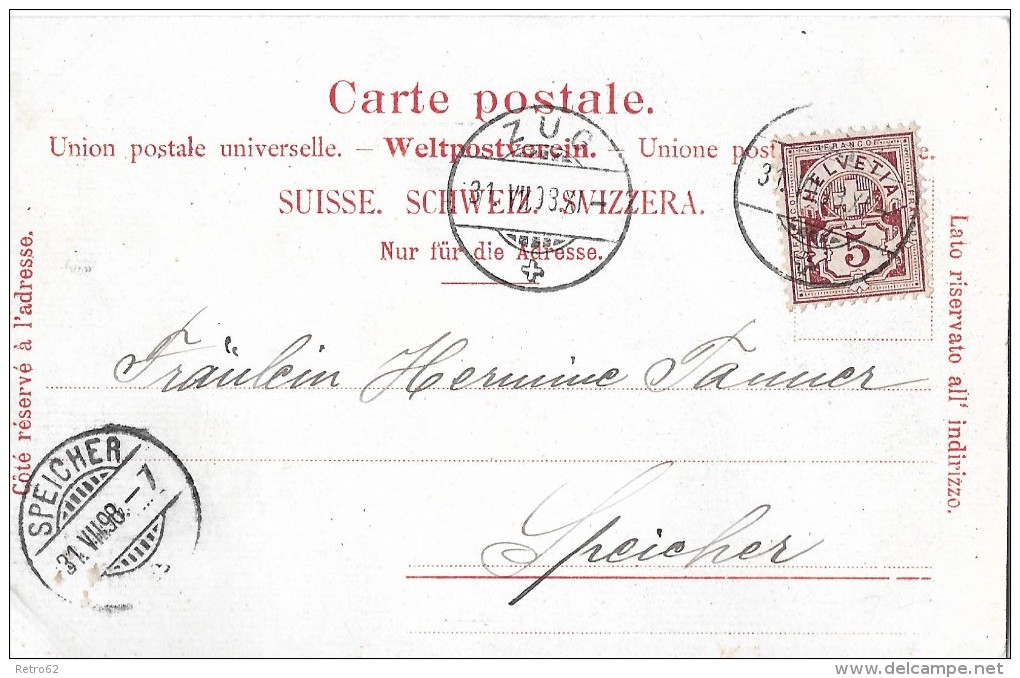 Carte postale.
Union postale universelle. – Weltpostverein. – Unione post
SUISSE. SCHWEIZ. SVIZZERA.
Nur für die Adresse.
Côté réservé à l'adresse.
Lato riservato all' indirizzo.
ZUG
31. VII. 98.
31.
FRANCO
HELVETIA
5
Fräulein Hermine Tanner
Speicher
SPEICHER
31. VII. 98. – 7
Retro62
www.delcampe.net